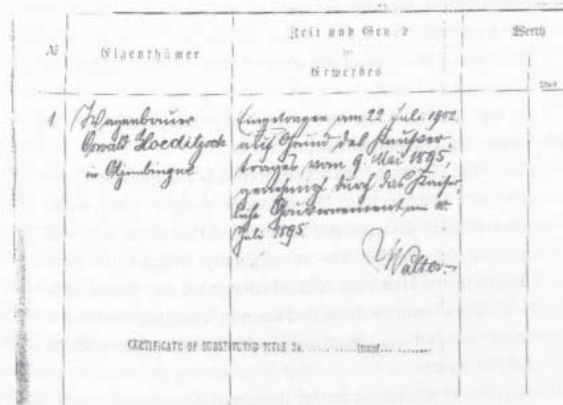 №
Eigenthümer
Zeit und Grund
des
Erwerbes
Werth
1. Wagenbauer
Oswald Hoeditzsch
in Otjimbingue
Eingetragen am 22. Juli 1902
auf Grund des Kaufver-
trages vom 9. Mai 1895,
genehmigt durch das Kaiser-
liche Gouvernement am
Juli 1895.
Walter.
CERTIFICATE OF SUBSTITUTED TITLE